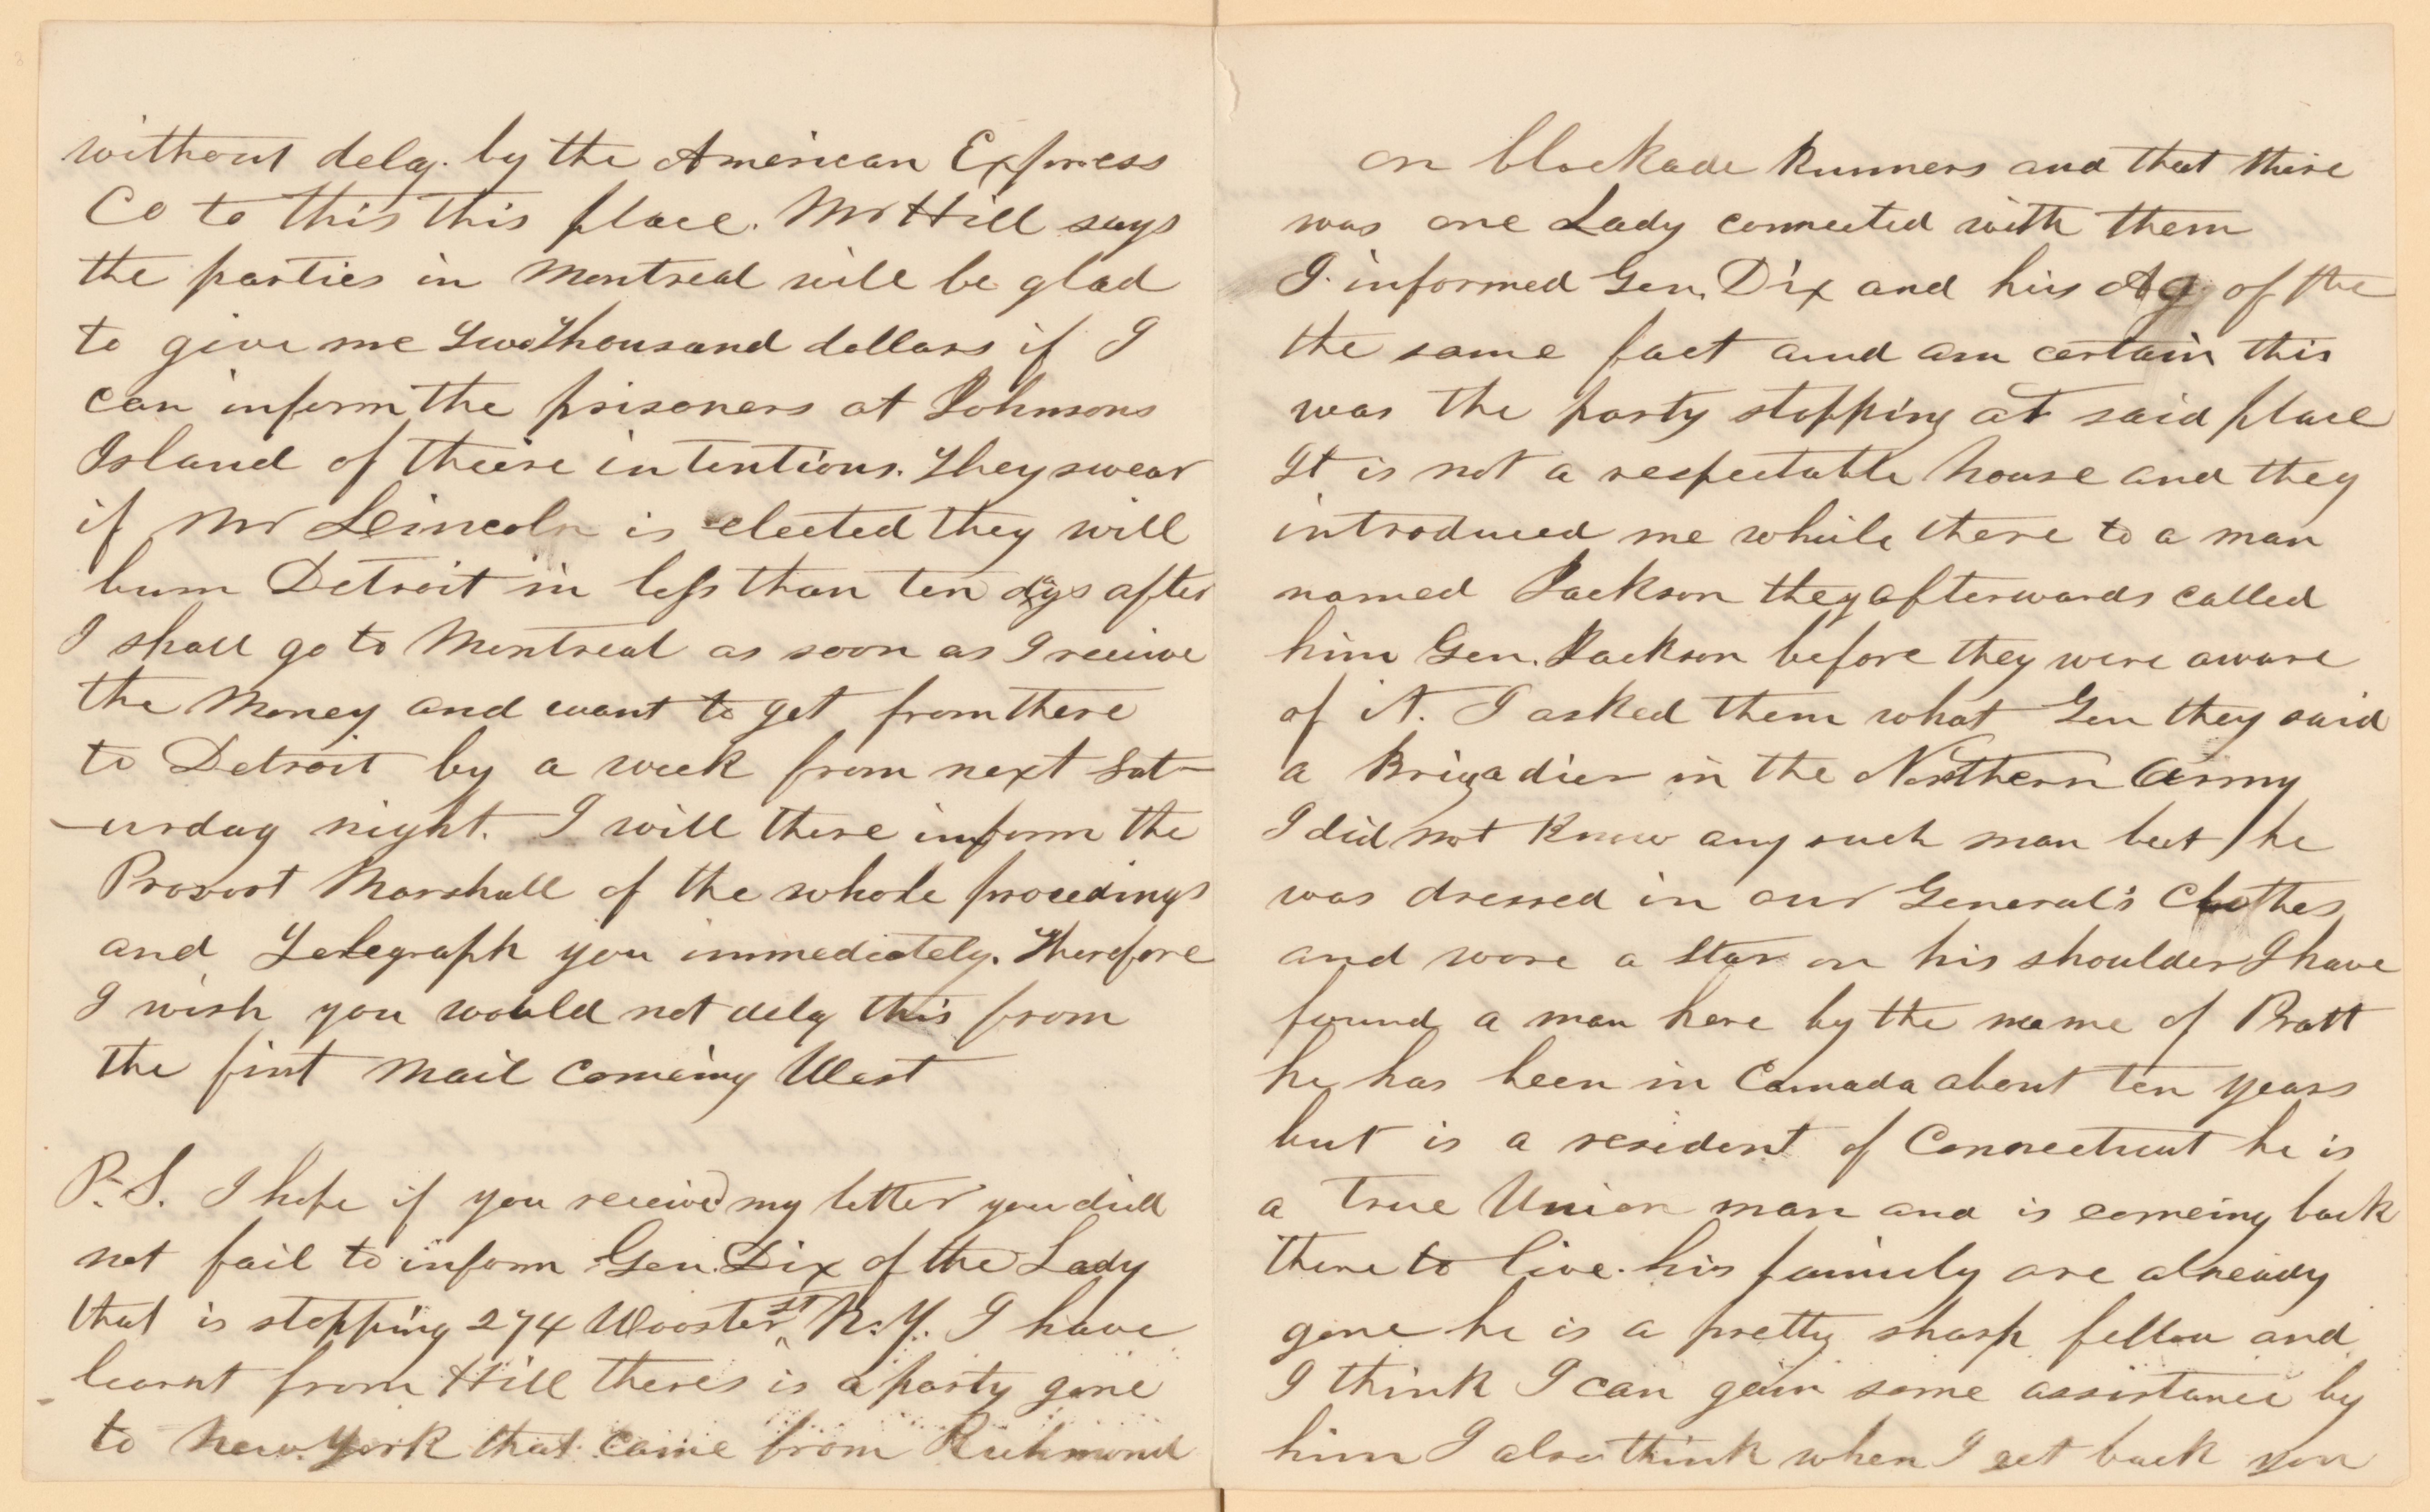 without delay. by the American Express
Co to this this place. Mr Hill says
the parties in Montreal will be glad
to give me Two Thousand dollars if I
can inform the prisoners at Johnsons
Island of theire intentions. They swear
if Mr Leincoln is elected they will
burn Detroit in less than ten days after
I shall go to Montreal as soon as I receive
the Money and want to get from there
to Detroit by a week from next Sat-
-urday night. I will there inform the
Provost Marshall of the whole procedings
and Telegraph you immediately. Therefore
I wish you would not delay this from
the first Mail Comeing West
P.S. I hope if you received my letter you did
not fail to inform Gen. Dix of the Lady
that is stopping 274 Wooster st N.Y. I have
learnt from Hill theres is a party gone
to New York that came from Richmond
on blockade Runners and that thire
was one Lady connected with them
I informed Gen. Dix and his Ag of the
the same fact and am certain this
was the party stopping at said place
It is not a respectable house and they
introduced me whiile there to a man
named Jackson they afterwards called
him Gen. Jackson before they were aware
of it. I asked them what Gen they said
a Brigadier in the Northern Army
I did not know any such man but he
was dressed in our General's Clothes
and wore a Star on his shoulder I have
found a man here by the name of Pratt
he has been in Canada about ten years
but is a resident of Connecticut he is
a true Union man and is comeing back
there to live. his faimily are already
gone he is a pretty sharp fellow and
I think I can gain some assistance by
him I also think when I get back you